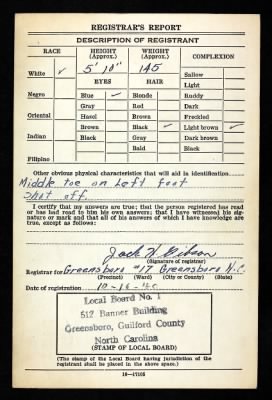 REGISTRAR'S REPORT
DESCRIPTION OF REGISTRANT
RACE HEIGHT (Approx.) WEIGHT (Approx.) COMPLEXION
White ✓ 5' 10" 145 Sallow
Light
EYES HAIR
Negro Blue ✓ Blonde Ruddy
Gray Red Dark
Oriental Hazel Brown Freckled
Brown Black ✓ Light brown ✓
Indian Black Gray Dark brown
Bald Black
Filipino
Other obvious physical characteristics that will aid in identification
Middle toe on Left foot
Shot off.
I certify that my answers are true; that the person registered has read
or has had read to him his own answers; that I have witnessed his sig-
nature or mark and that all of his answers of which I have knowledge are
true, except as follows:
Jack W Gibson
(Signature of registrar)
Registrar for Greensboro #17 Greensboro N.C.
(Precinct) (Ward) (City or County) (State)
Date of registration 10-16-40
Local Board No. 1
612 Banner Building
Greensboro, Guilford County
North Carolina
(STAMP OF LOCAL BOARD)
(The stamp of the Local Board having jurisdiction of the
registrant shall be placed in the above space.)
16—17105